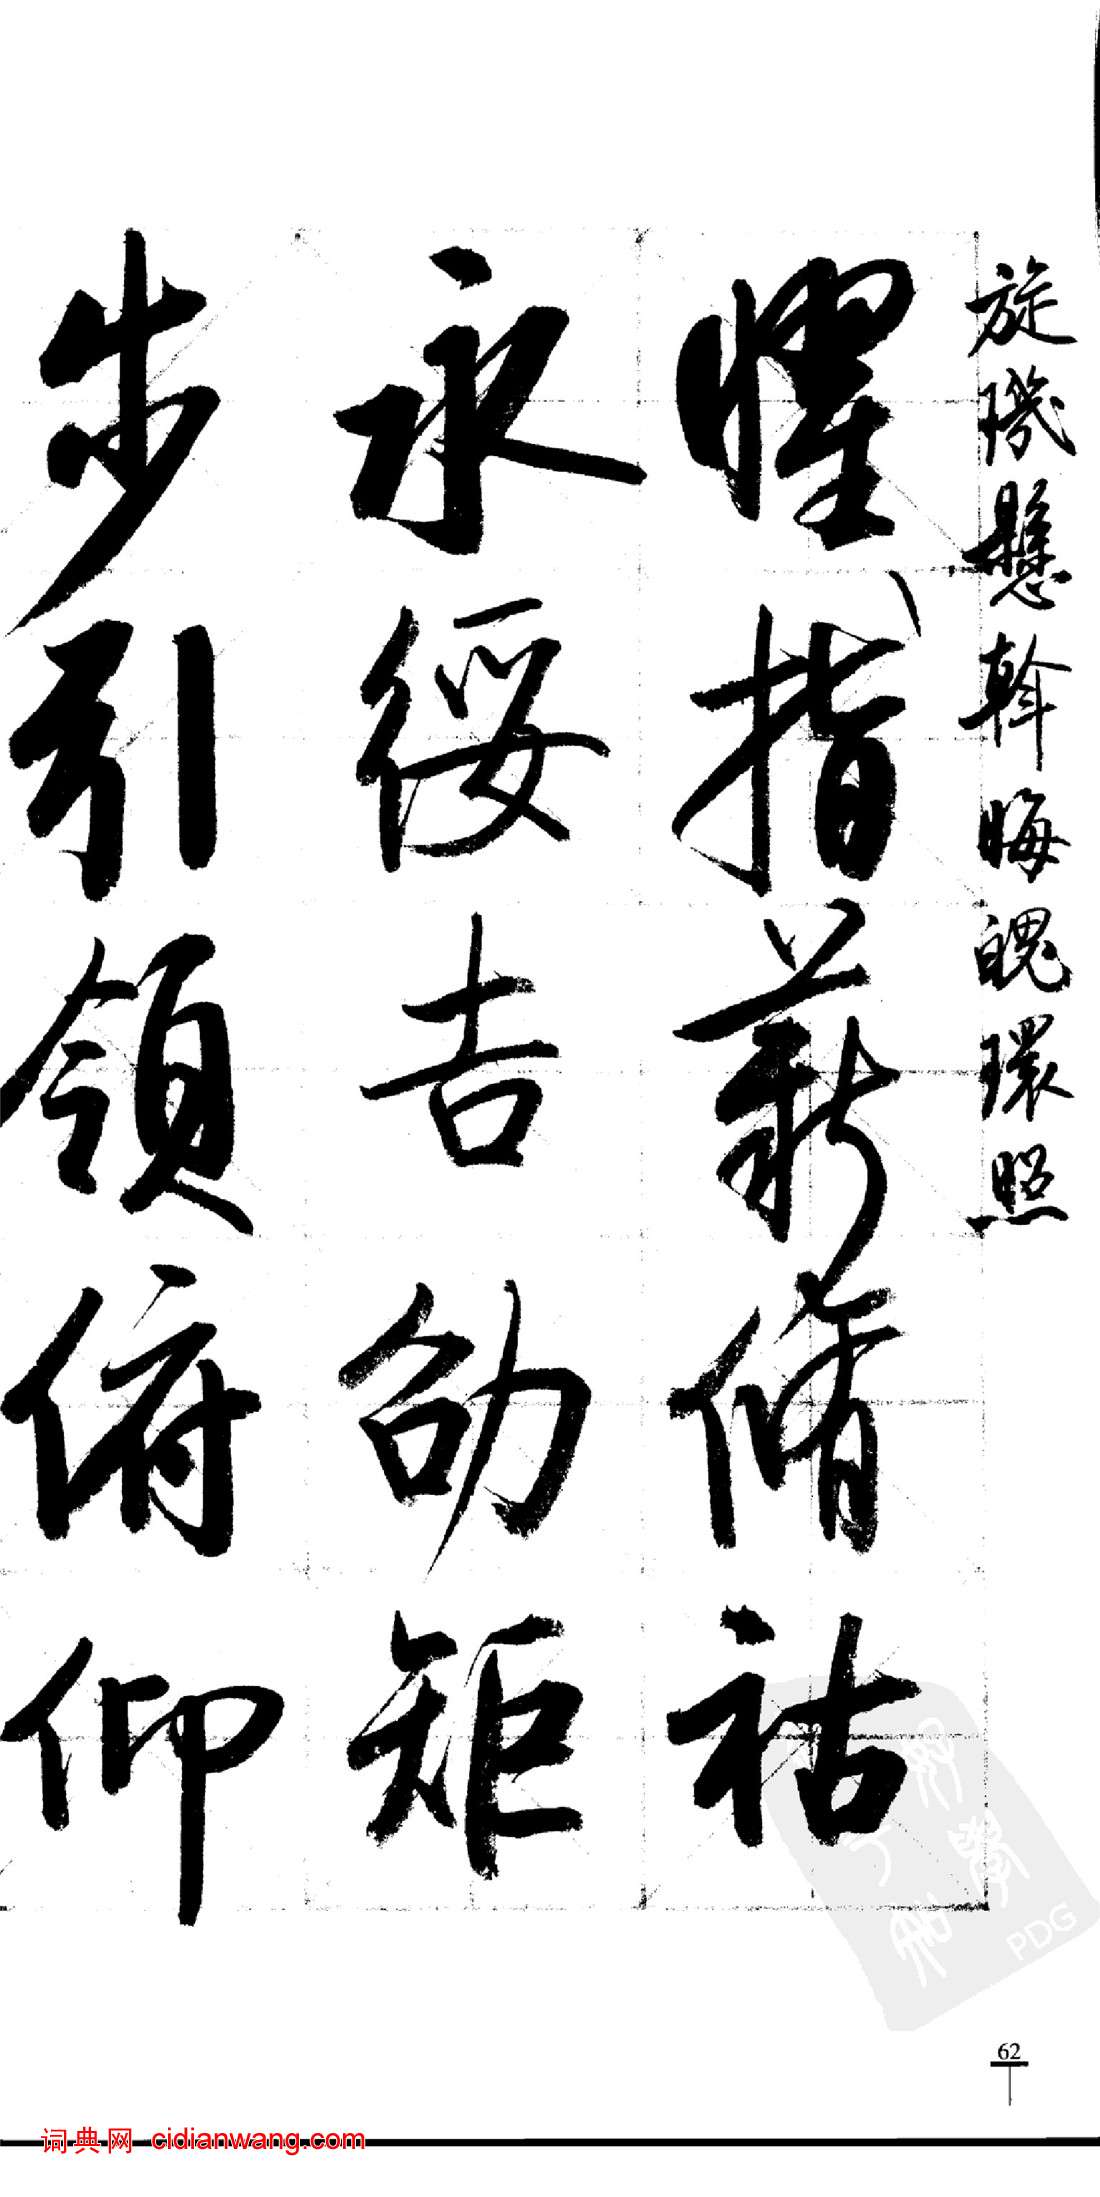 旋璣懸斡晦魄環照
曜指薪脩祜
永綏吉劭矩
步引領俯仰
62
词典网 cidianwang.com
PDG